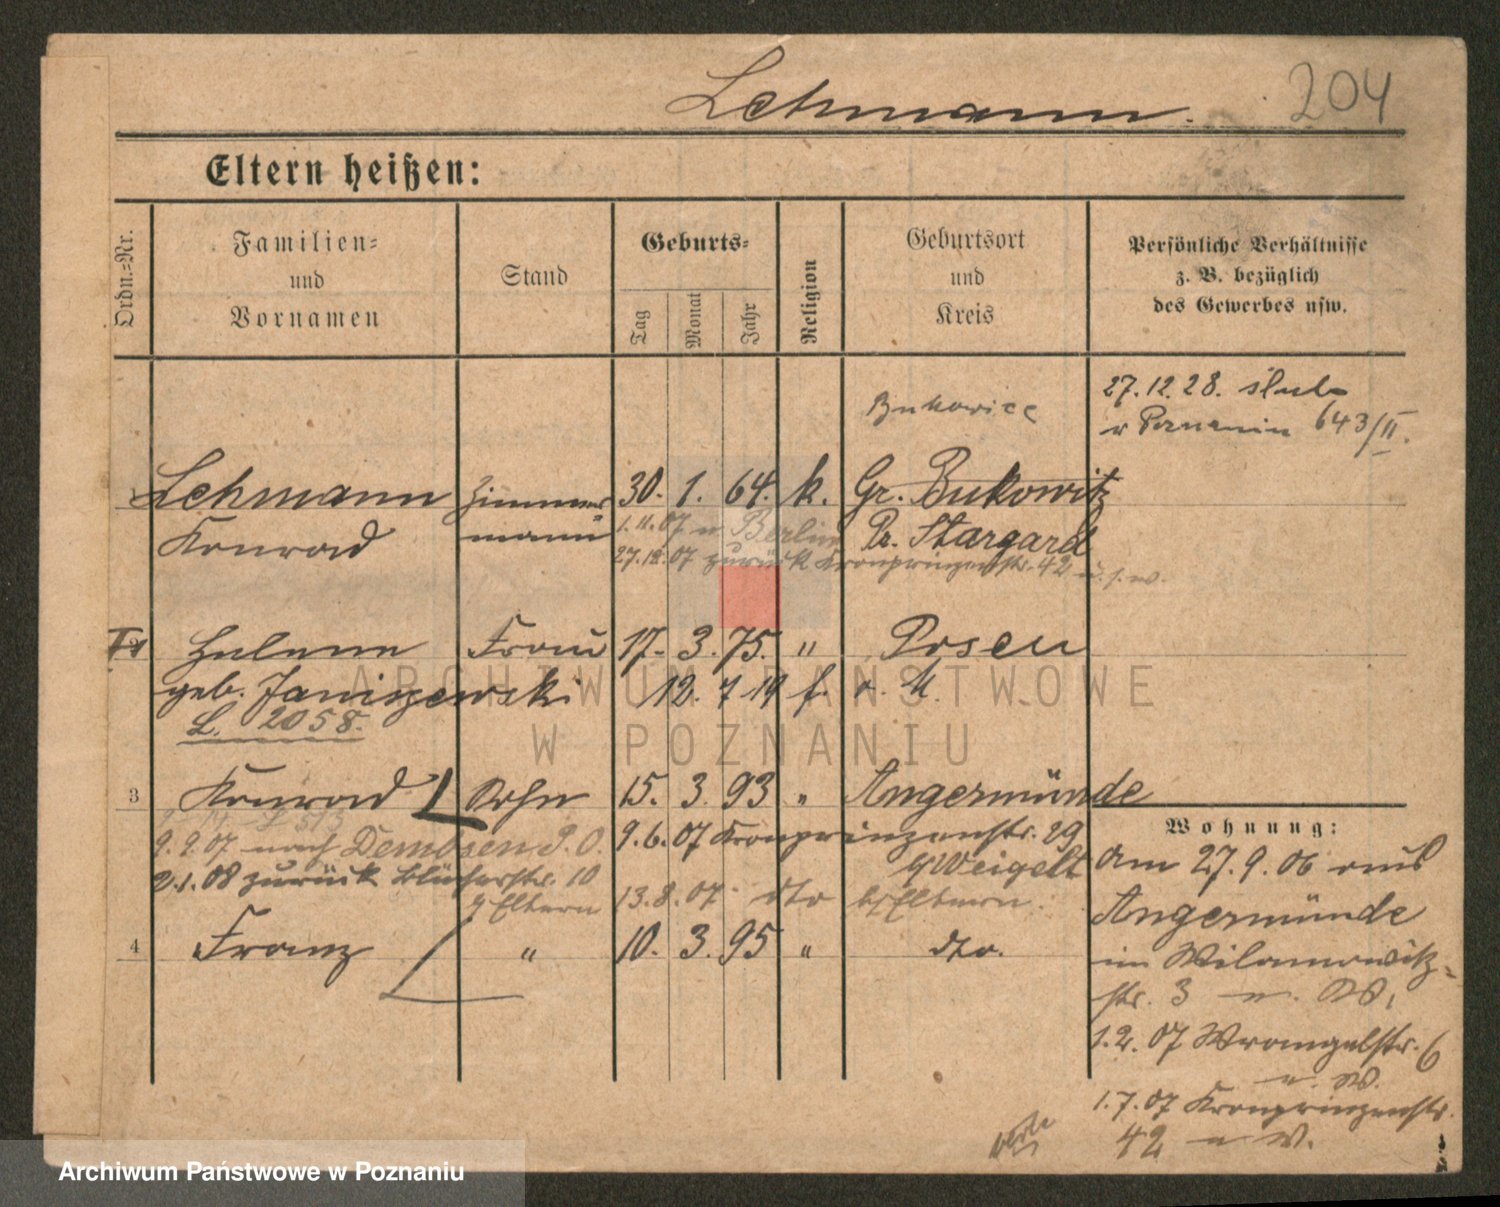 Lehmann.
204
Eltern heißen:
Ordn.=Nr.
Familien=
und
Vornamen
Stand
Geburts=
Tag
Monat
Jahr
Religion
Geburtsort
und
Kreis
Persönliche Verhältnisse
z. B. bezüglich
des Gewerbes usw.
Bukowice
27.12.28. ślub
w Poznaniu 643/II.
Lehmann Zimmer= 30. 1. 64. k. Gr. Bukowitz
Konrad mann Pr. Stargard
1.11.07 n Berlin
27.12.07 zurück Kronprinzenstr. 42 u. s. w.
Helene Frau 17. 3. 75. " Posen
geb. Janiszewski 12. 7 19 f.
L. 2058.
3 Konrad Sohn 15. 3. 93 " Angermünde
9.6.07 Kronprinzenstr. 29
b/Weigelt
9.9.07 nach Demosen P. O.
2.1.08 zurück Blücherstr. 10
b/Eltern 13.8.07 dto b/Eltern.
4 Franz " 10. 3. 95 " dto.
Wohnung:
Am 27.9.06 aus
Angermünde
im Wilamowitz=
str. 3
1.2.07 Wrangelstr. 6
1.7.07 Kronprinzenstr.
42 n W.
ARCHIWUM PAŃSTWOWE
W POZNANIU
Archiwum Państwowe w Poznaniu